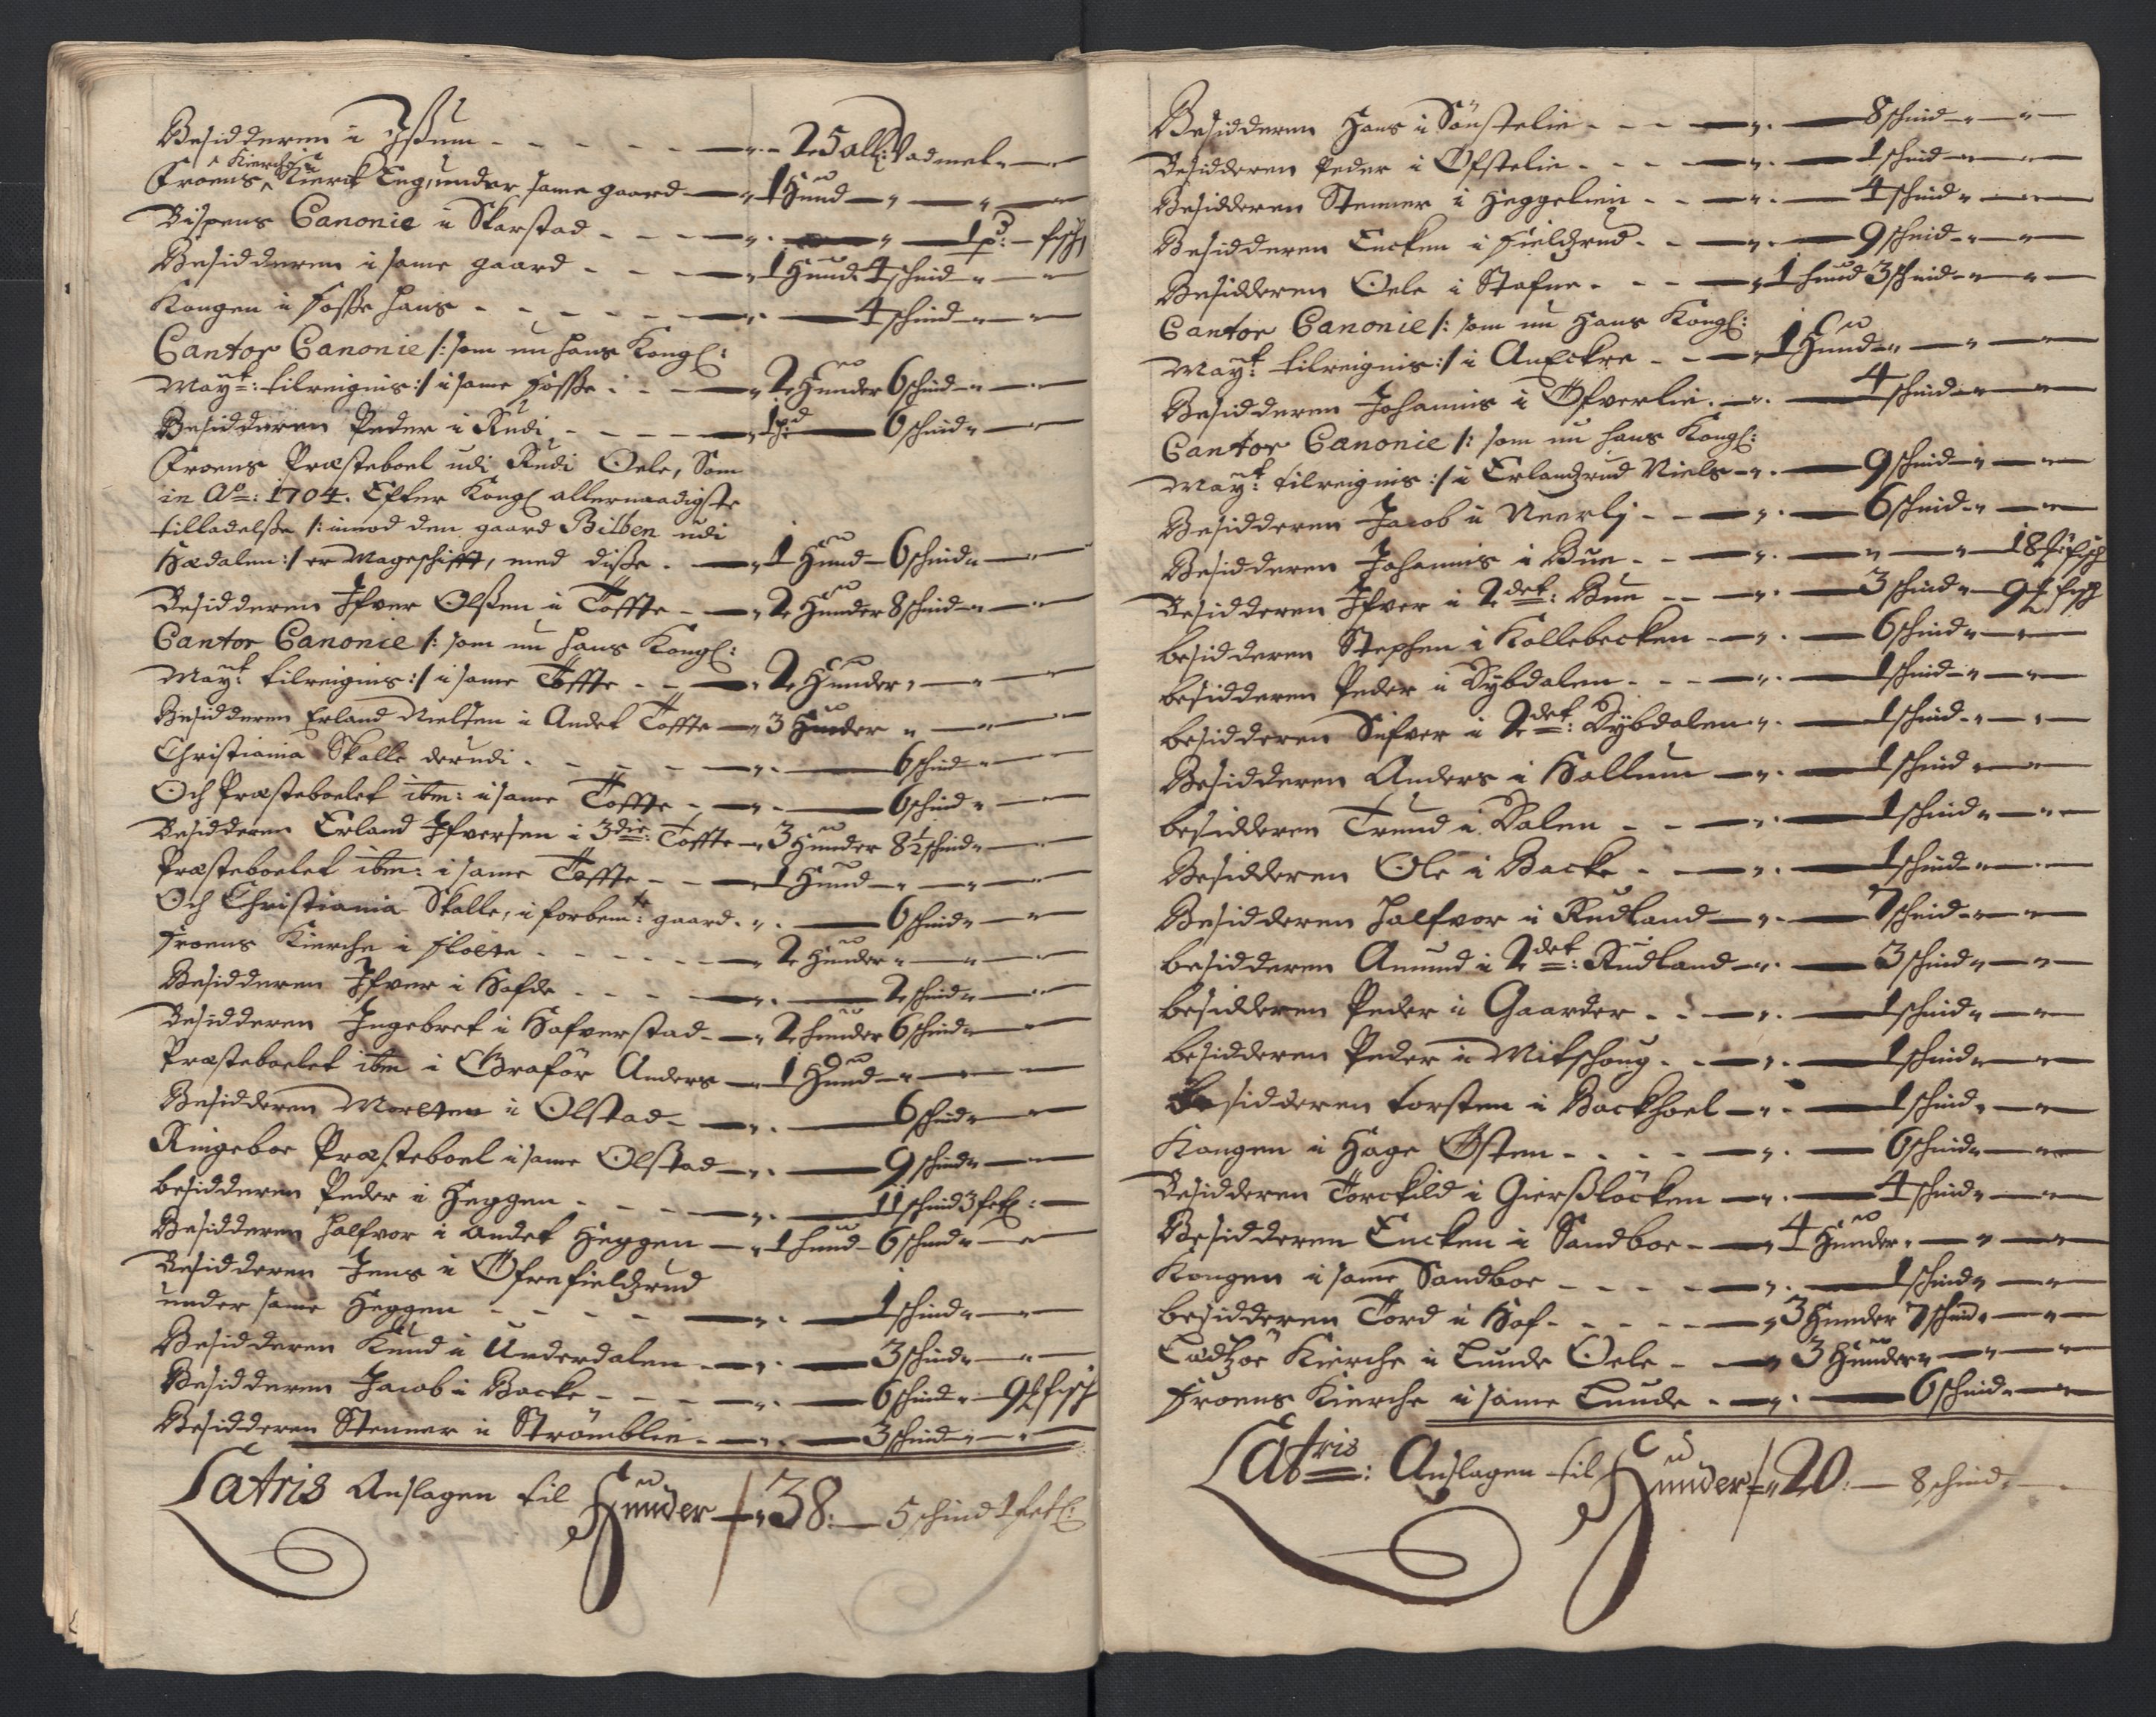 Besidderen i Ißum - - - - - 25 all: Vadmel
Froens Kierche Eng, under same gaard 1 Hund
Bispens Canonie i Skarstad - - - 1 pd: fisch
Besidderen i same gaard - - - 1 Hund 4 schind
Kongen i Foße Hans - - - - 4 schind
Cantor Canonie /: som nu hans Kongl:
Mayt: tilreignis :/ i same Foße - - 2 Hunder 6 schind
Besidderen Peder i Rudi - - - - 1 pd 6 schind
Froens Præsteboel udi Rudi Oele, Som
in Ao: 1704. Efter Kongl allernaadigste
tilladelße /: imod den gaard Bilben udi
Hædalen :/ er Mageschifft, med diße. 1 Hund 6 schind
Besidderen Ifver Olßen i Toffte - 2 Hunder 8 schind
Cantor Canonie /: som nu hans Kongl:
Mayt tilreignis :/ i same Toffte - - 2 Hunder
Besidderen Erland Nielsen i Andet Toffte 3 Hunder
Christiania Skalle derudi - - - - 6 schind
Och Præsteboelet ibm: i same Toffte - 6 schind
Besidderen Erland Ifversen i 3die: Toffte 3 Hunder 8½ schind
Præsteboelet ibm: i same Toffte - - 1 Hund
Och Christiania Skalle, i forbemte: gaard. 6 schind
Froens Kierche i Floete - - - - 2 Hunder
Besidderen Ifver i Hafde - - - - 2 schind
Besidderen Ingebret i Hafverstad - 2 hunder 6 schind
Præsteboelet ibm i Grafför Anders 1 Hund
Besidderen Morten i Olstad - 6 schind
Ringeboe Præsteboel i same Olstad 9 schind
besidderen Peder i Heggen - - - 11 schind 3 fetl:
Besidderen Halfvor i Andet Heggen 1 hund 6 schind
Besidderen Jens i Øfrefieldzrud
under same Heggen - - - - 1 schind
Besidderen Knud i Underdalen - 3 schind
Besidderen Jacob i Backe - - - 6 schind 9 ℔ fisch
Besidderen Stenner i Strömblie - 3 schind
Latris Anslagen til Hunder 38: 5 schind 1 fetl:
Besidderen Hans i Sönstelie - - - 8 schind
Besidderen Peder i Øfstelie - - - 1 schind
Besidderen Stenner i Heggelien - - 4 schind
Besidderen Encken i Fieldzrud - - 9 schind
Besidderen Oele i Stafne - - - 1 hund 3 schind
Cantor Canonie /: som nu Hans Kongl:
Mayt: tilreignis :/ i AnEckre - - 1 Hund
Besidderen Johannis i Øfverlie. 4 schind
Cantor Canonie /: som nu hans Kongl:
Mayt: tilreignis :/ i Erlandzrud Niels 9 schind
Besidderen Jacob i Neerlj - - 6 schind
Besidderen Johannis i Bue - - 18 ℔ fisch
Besidderen Ifver i 2det: Bue - - 3 schind 9 ℔ fisch
besidderen Stephen i Kollebecken - 6 schind
besidderen Peder i Dybdalen - - - 1 schind
besidderen Sifver i 2det: Dybdalen 1 schind
Besidderen Anders i Hallum 1 schind
besidderen Trund i Dalen - - 1 schind
Besidderen Ole i Backe - 1 schind
Besidderen Halfvor i Rudland 7 schind
besidderen Amund i 2det: Rudland 3 schind
besidderen Peder i Gaarder - - 1 schind
besidderen Peder i Mitschoug - - 1 schind
Besidderen torsten i Backhoel 1 schind
Kongen i Hage Østen - - - - 6 schind
Besidderen Torckild i Gierßlöcken 4 schind
Besidderen Encken i Sandboe - 4 Hunder
Kongen i same Sandboe - - - - 1 schind
besidderen Tord i Hof - - - - 3 Hunder 7 schind
Lædzöe Kierche i Lunde Oele - 3 Hunder
Froens Kierche i same Lunde - 6 schind
Latris: Anslagen til Hunder 20: 8 schind